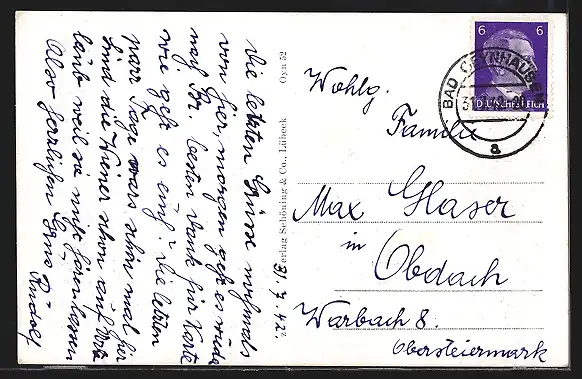 31.7.42.
die letzten Grüsse nochmals
von hier, morgen geht es wieder
nach Br. besten Dank für Karte
wie geht es euch? die letzten
paar Tage war schon mal hier
sind die Wiener schon auf
laub weil sie nicht
Also herzlichen Gruss Rudolf
Verlag Schöning & Co., Lübeck Oyn 52
6 6
DEUTSCHES REICH
BAD OEYNHAUSEN
a
Wohlg.
Familie
Max Glaser
in
Obdach
Warbach 8.
Obersteiermark